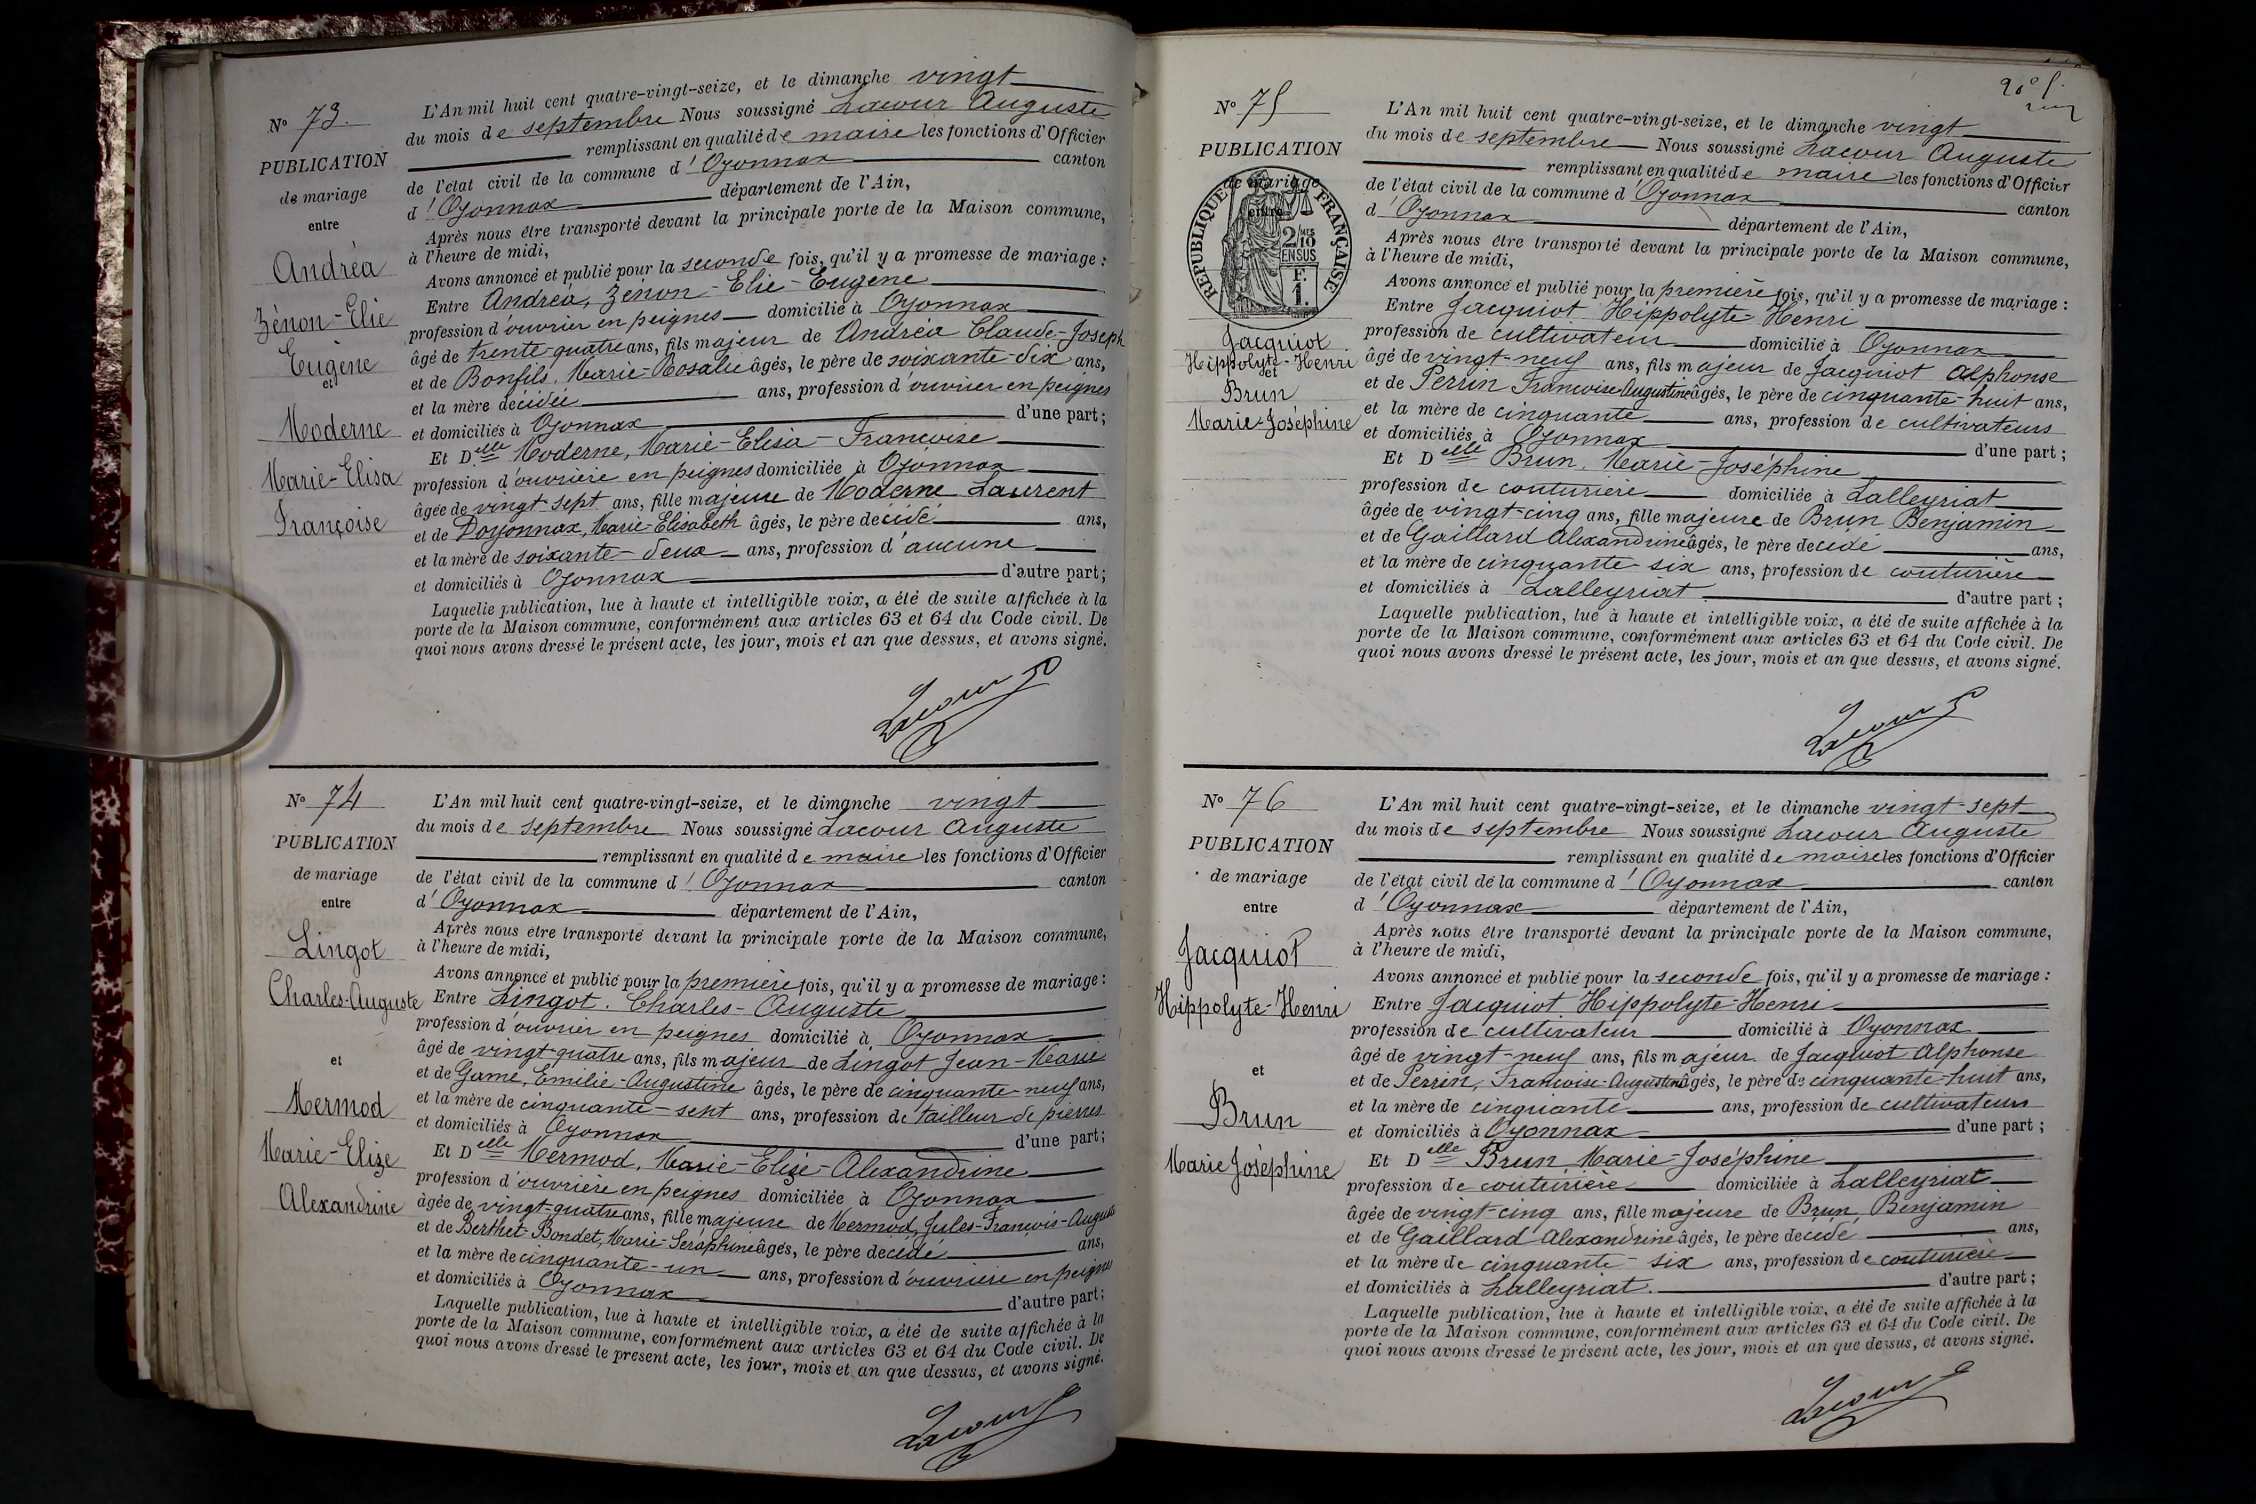 N° 73.
PUBLICATION
de mariage
entre
Andréa
Zénon-Elie
Eugène
et
Moderne
Marie-Elisa
Françoise
L'An mil huit cent quatre-vingt-seize, et le dimanche vingt
du mois de septembre Nous soussigné Lacour Auguste
remplissant en qualité de maire les fonctions d'Officier
de l'état civil de la commune d'Oyonnax canton
d'Oyonnax département de l'Ain,
Après nous être transporté devant la principale porte de la Maison commune,
à l'heure de midi,
Avons annoncé et publié pour la seconde fois, qu'il y a promesse de mariage :
Entre Andréa, Zénon-Elie-Eugène
profession d'ouvrier en peignes domicilié à Oyonnax
âgé de trente-quatre ans, fils majeur de Andréa Claude-Joseph
et de Bonfils, Marie-Rosalie âgés, le père de soixante-dix ans,
et la mère décédée ans, profession d'ouvrier en peignes
et domiciliés à Oyonnax d'une part ;
Et Delle Moderne, Marie-Elisa-Françoise
profession d'ouvrière en peignes domiciliée à Oyonnax
âgée de vingt-sept ans, fille majeure de Moderne Laurent
et de Doyonnax, Marie-Elisabeth âgés, le père décédé ans,
et la mère de soixante-deux ans, profession d'aucune
et domiciliés à Oyonnax d'autre part ;
Laquelle publication, lue à haute et intelligible voix, a été de suite affichée à la
porte de la Maison commune, conformément aux articles 63 et 64 du Code civil. De
quoi nous avons dressé le présent acte, les jour, mois et an que dessus, et avons signé.
Lacour
N° 74
PUBLICATION
de mariage
entre
Lingot
Charles-Auguste
et
Mermod
Marie-Elize
Alexandrine
L'An mil huit cent quatre-vingt-seize, et le dimanche vingt
du mois de septembre Nous soussigné Lacour Auguste
remplissant en qualité de maire les fonctions d'Officier
de l'état civil de la commune d'Oyonnax canton
d'Oyonnax département de l'Ain,
Après nous être transporté devant la principale porte de la Maison commune,
à l'heure de midi,
Avons annoncé et publié pour la première fois, qu'il y a promesse de mariage :
Entre Lingot. Charles-Auguste
profession d'ouvrier en peignes domicilié à Oyonnax
âgé de vingt-quatre ans, fils majeur de Lingot Jean-Marie
et de Game, Emilie-Augustine âgés, le père de cinquante-neuf ans,
et la mère de cinquante-sept ans, profession de tailleur de pierres
et domiciliés à Oyonnax d'une part ;
Et Delle Mermod, Marie-Elize-Alexandrine
profession d'ouvrière en peignes domiciliée à Oyonnax
âgée de vingt-quatre ans, fille majeure de Mermod, Jules-François-Auguste
et de Berthet-Bondet, Marie-Séraphine âgés, le père décédé ans,
et la mère de cinquante-un ans, profession d'ouvrière en peignes
et domiciliés à Oyonnax d'autre part ;
Laquelle publication, lue à haute et intelligible voix, a été de suite affichée à la
porte de la Maison commune, conformément aux articles 63 et 64 du Code civil. De
quoi nous avons dressé le présent acte, les jour, mois et an que dessus, et avons signé.
Lacour
N° 75
PUBLICATION
de mariage
entre
REPUBLIQUE FRANÇAISE
2/10
MES
EN SUS
F.
1.
Jacquiot
Hippolyte-Henri
et
Brun
Marie-Joséphine
L'An mil huit cent quatre-vingt-seize, et le dimanche vingt
du mois de septembre Nous soussigné Lacour Auguste
remplissant en qualité de maire les fonctions d'Officier
de l'état civil de la commune d'Oyonnax canton
d'Oyonnax département de l'Ain,
Après nous être transporté devant la principale porte de la Maison commune,
à l'heure de midi,
Avons annoncé et publié pour la première fois, qu'il y a promesse de mariage :
Entre Jacquiot Hippolyte Henri
profession de cultivateur domicilié à Oyonnax
âgé de vingt-neuf ans, fils majeur de Jacquiot Alphonse
et de Perrin Francoise Augustine âgés, le père de cinquante-huit ans,
et la mère de cinquante ans, profession de cultivateurs
et domiciliés à Oyonnax d'une part ;
Et Delle Brun. Marie-Joséphine
profession de couturière domiciliée à Lalleyriat
âgée de vingt-cinq ans, fille majeure de Brun Benjamin
et de Gaillard Alexandrine âgés, le père décédé ans,
et la mère de cinquante-six ans, profession de couturière
et domiciliés à Lalleyriat d'autre part ;
Laquelle publication, lue à haute et intelligible voix, a été de suite affichée à la
porte de la Maison commune, conformément aux articles 63 et 64 du Code civil. De
quoi nous avons dressé le présent acte, les jour, mois et an que dessus, et avons signé.
Lacour
N° 76
PUBLICATION
de mariage
entre
Jacquiot
Hippolyte-Henri
et
Brun
Marie Joséphine
L'An mil huit cent quatre-vingt-seize, et le dimanche vingt-sept
du mois de septembre Nous soussigné Lacour Auguste
remplissant en qualité de maire les fonctions d'Officier
de l'état civil de la commune d'Oyonnax canton
d'Oyonnax département de l'Ain,
Après nous être transporté devant la principale porte de la Maison commune,
à l'heure de midi,
Avons annoncé et publié pour la seconde fois, qu'il y a promesse de mariage :
Entre Jacquiot Hippolyte-Henri
profession de cultivateur domicilié à Oyonnax
âgé de vingt-neuf ans, fils majeur de Jacquiot Alphonse
et de Perrin, Francoise-Augustine âgés, le père de cinquante-huit ans,
et la mère de cinquante ans, profession de cultivateurs
et domiciliés à Oyonnax d'une part ;
Et Delle Brun Marie-Joséphine
profession de couturière domiciliée à Lalleyriat
âgée de vingt-cinq ans, fille majeure de Brun Benjamin
et de Gaillard Alexandrine âgés, le père décédé ans,
et la mère de cinquante-six ans, profession de couturière
et domiciliés à Lalleyriat. d'autre part ;
Laquelle publication, lue à haute et intelligible voix, a été de suite affichée à la
porte de la Maison commune, conformément aux articles 63 et 64 du Code civil. De
quoi nous avons dressé le présent acte, les jour, mois et an que dessus, et avons signé.
Lacour